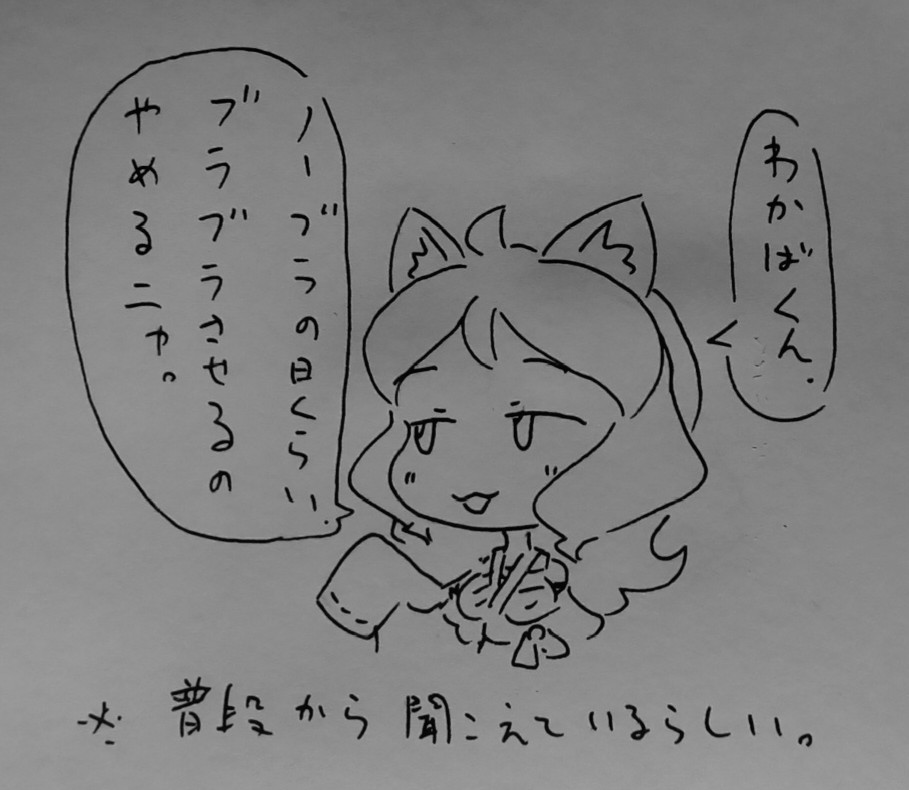 わかばくん.
ノーブラの日くらい.
ブラブラさせるの
やめるニャ。
※ 普段から聞こえているらしい。